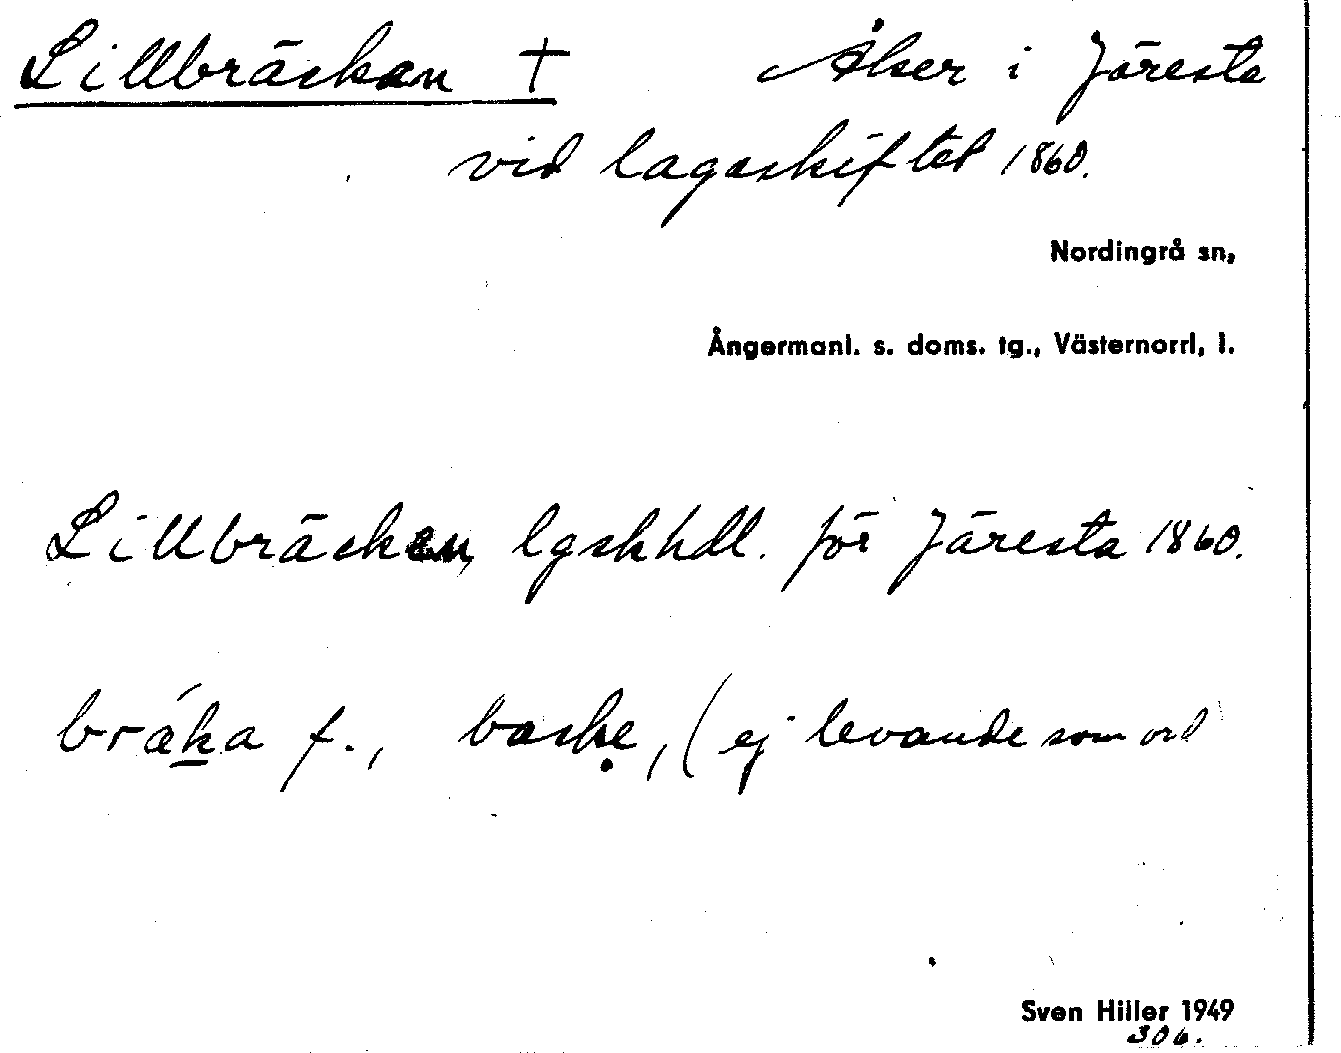 Lillbräckan † Åker i Järesta
vid lagaskiftet 1860.
Nordingrå sn,
Ångermanl. s. doms. tg., Västernorrl, l.
Lillbräckan, lgskhdl. för Järesta 1860.
bräka f., backe, (ej levande som ord
Sven Hiller 1949
306.